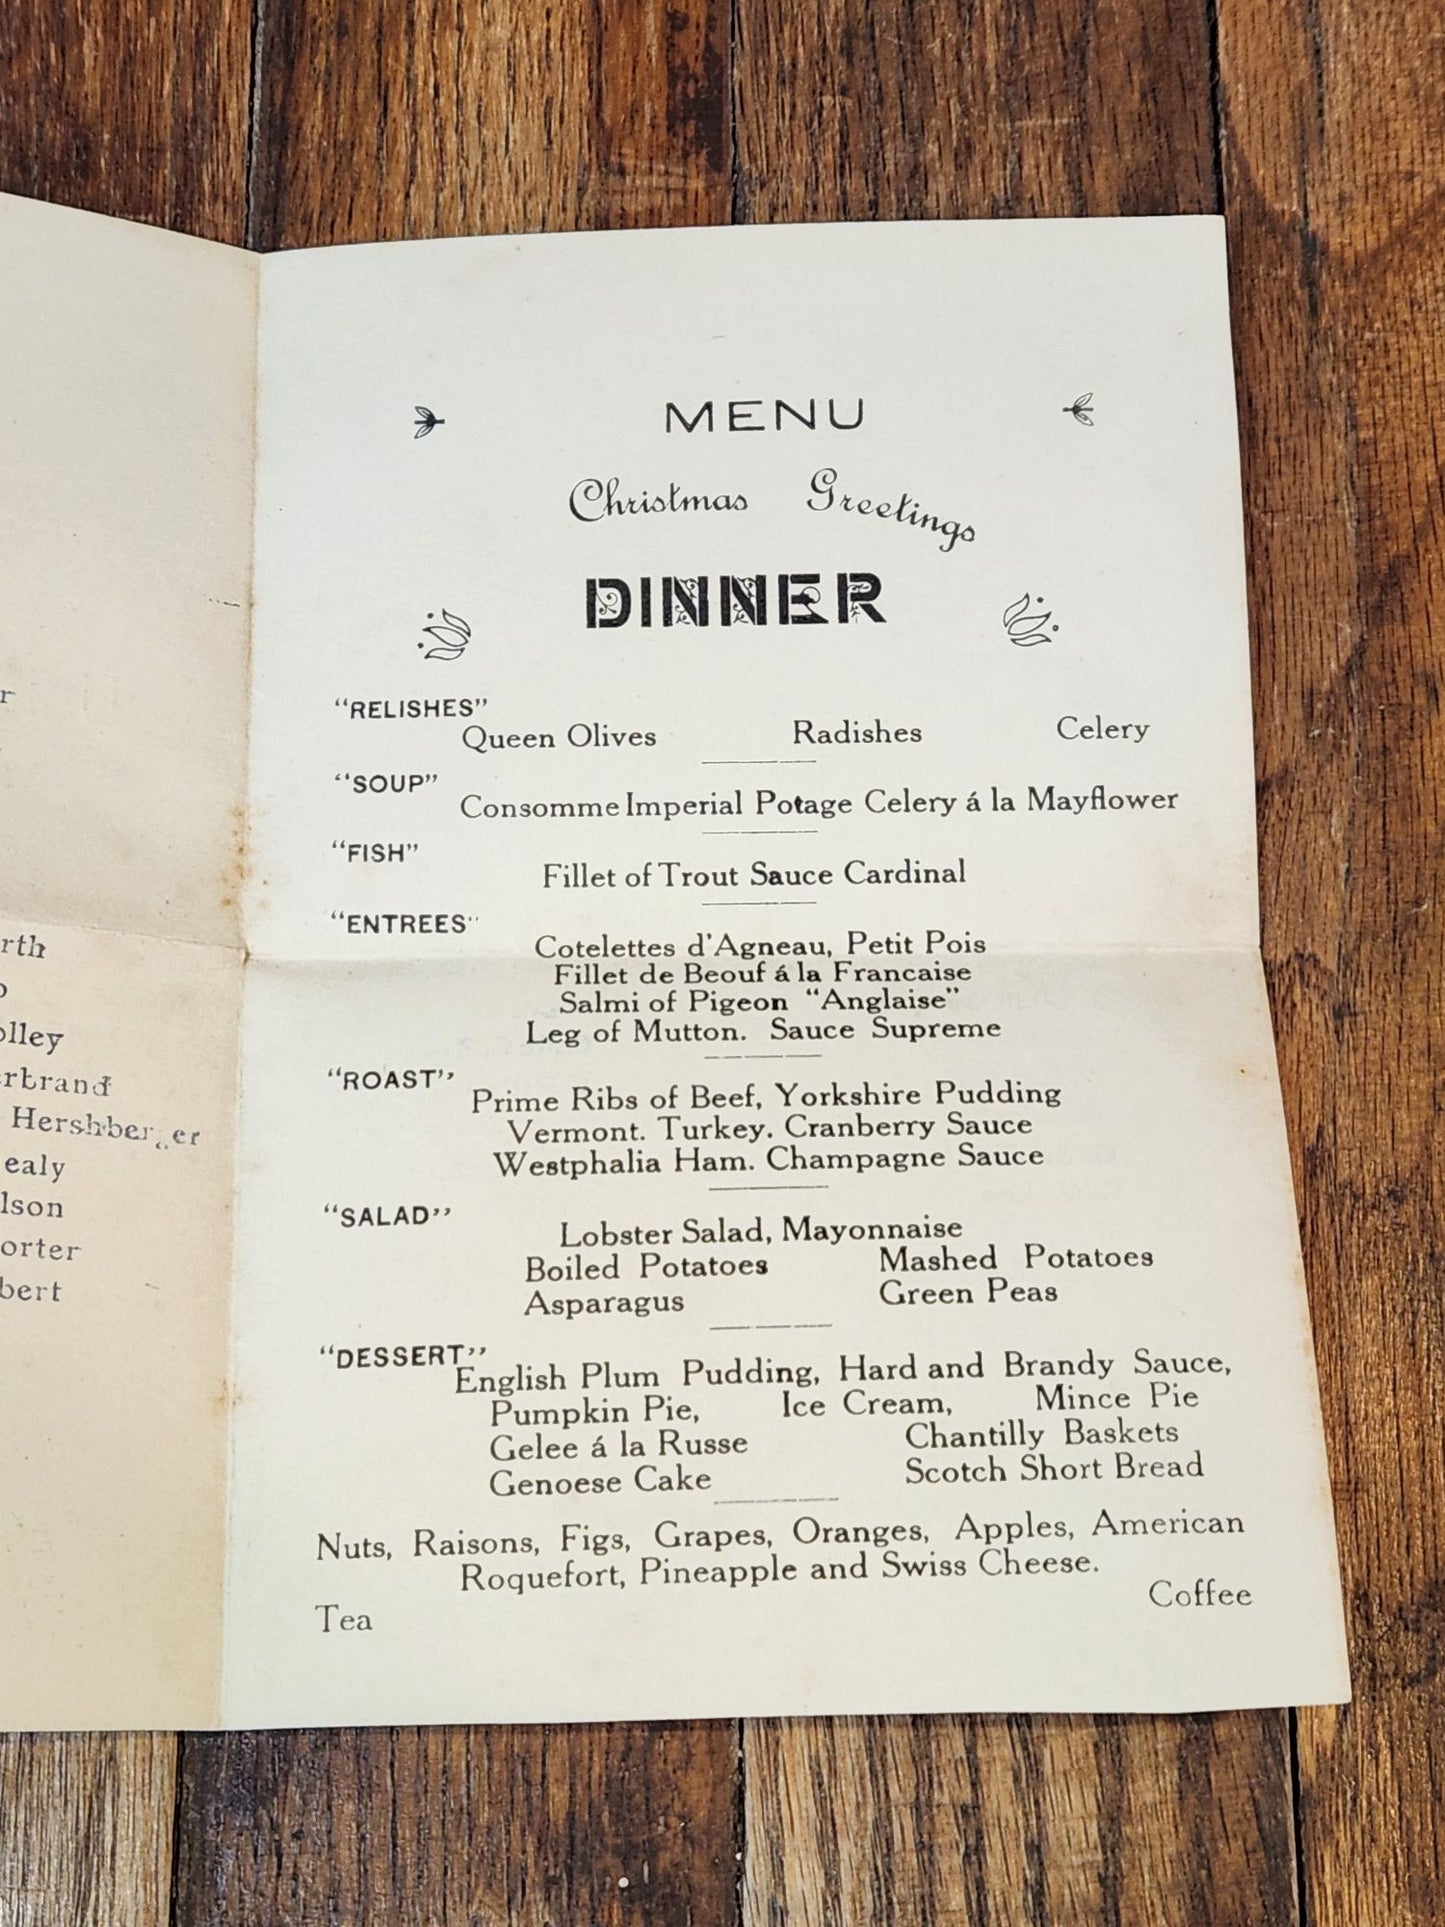 Hershberger
MENU
Christmas Greetings
DINNER
"RELISHES"
Queen Olives Radishes Celery
"SOUP"
Consomme Imperial Potage Celery á la Mayflower
"FISH"
Fillet of Trout Sauce Cardinal
"ENTREES"
Cotelettes d'Agneau, Petit Pois
Fillet de Beouf á la Francaise
Salmi of Pigeon "Anglaise"
Leg of Mutton. Sauce Supreme
"ROAST"
Prime Ribs of Beef, Yorkshire Pudding
Vermont. Turkey. Cranberry Sauce
Westphalia Ham. Champagne Sauce
"SALAD"
Lobster Salad, Mayonnaise
Boiled Potatoes Mashed Potatoes
Asparagus Green Peas
"DESSERT"
English Plum Pudding, Hard and Brandy Sauce,
Pumpkin Pie, Ice Cream, Mince Pie
Gelee á la Russe Chantilly Baskets
Genoese Cake Scotch Short Bread
Nuts, Raisons, Figs, Grapes, Oranges, Apples, American
Roquefort, Pineapple and Swiss Cheese.
Tea Coffee